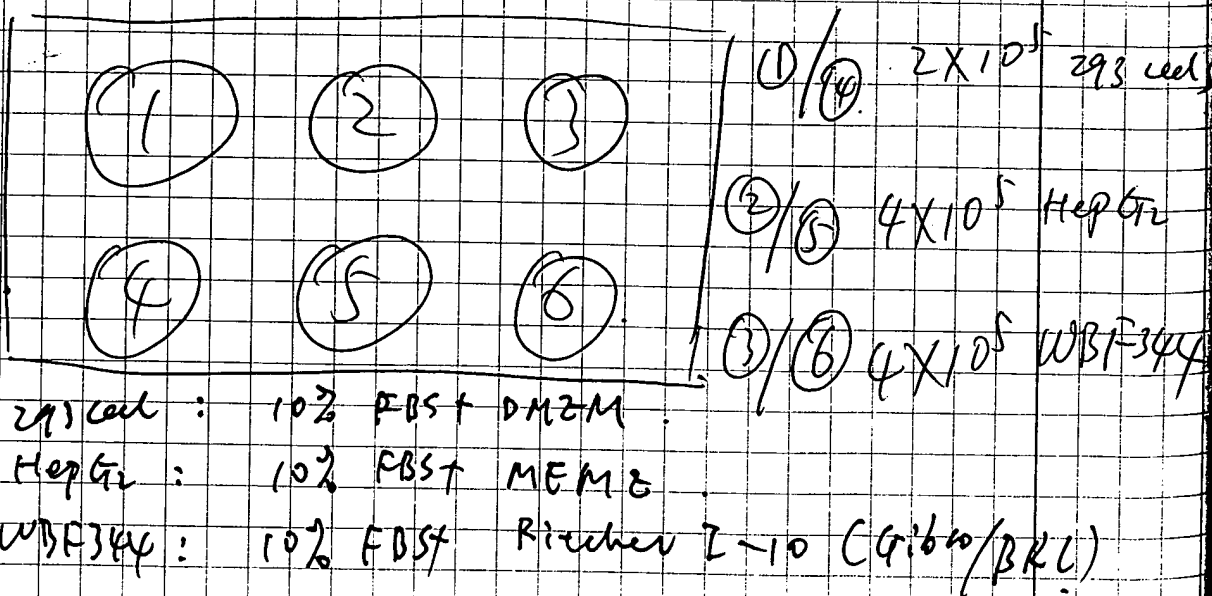 ① ② ③
④ ⑤ ⑥
①/④ 2X10⁵ 293 cells
②/⑤ 4X10⁵ HepG2
③/⑥ 4X10⁵ WBF344
293 cell : 10% FBS+ DMEM.
HepG2 : 10% FBS+ MEME.
WBF344 : 10% FBS+ I-10 (Gibco/BRL)